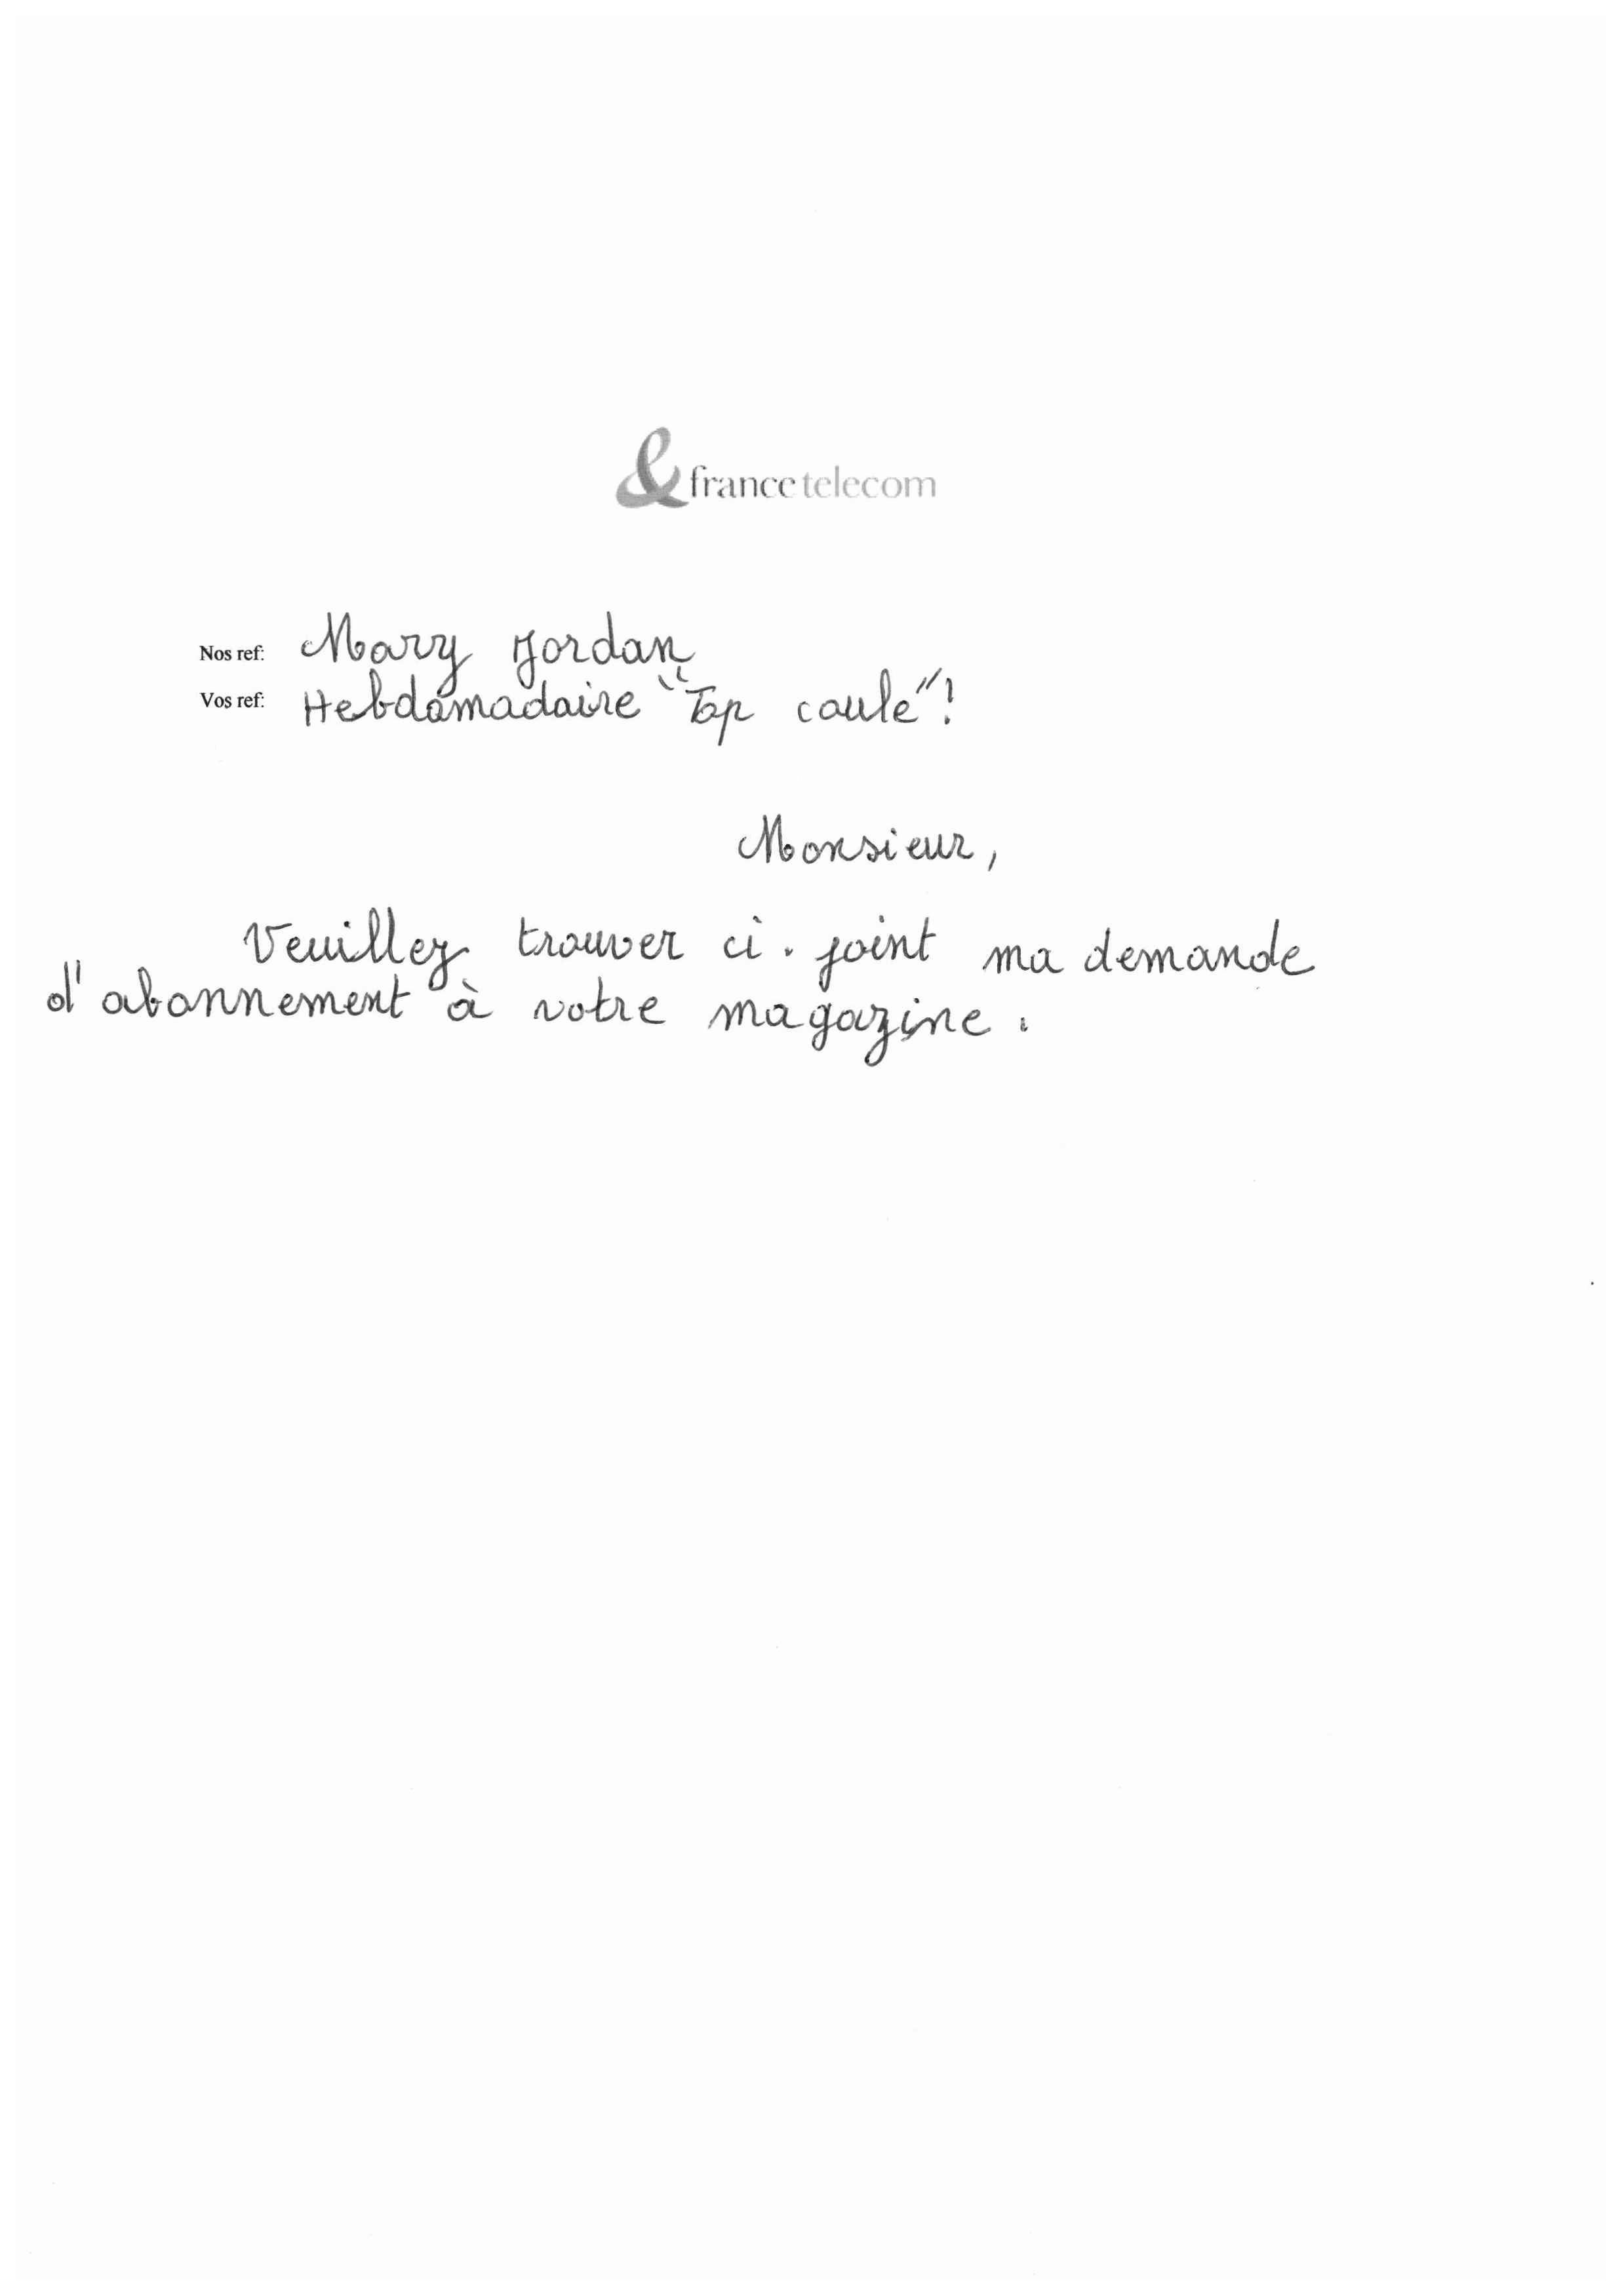 & france telecom
Nos ref: Mary Jordan
Vos ref: Hebdomadaire "Top coulé"!
Monsieur,
Veuillez trouver ci-joint ma demande
d'abonnement à votre magazine.